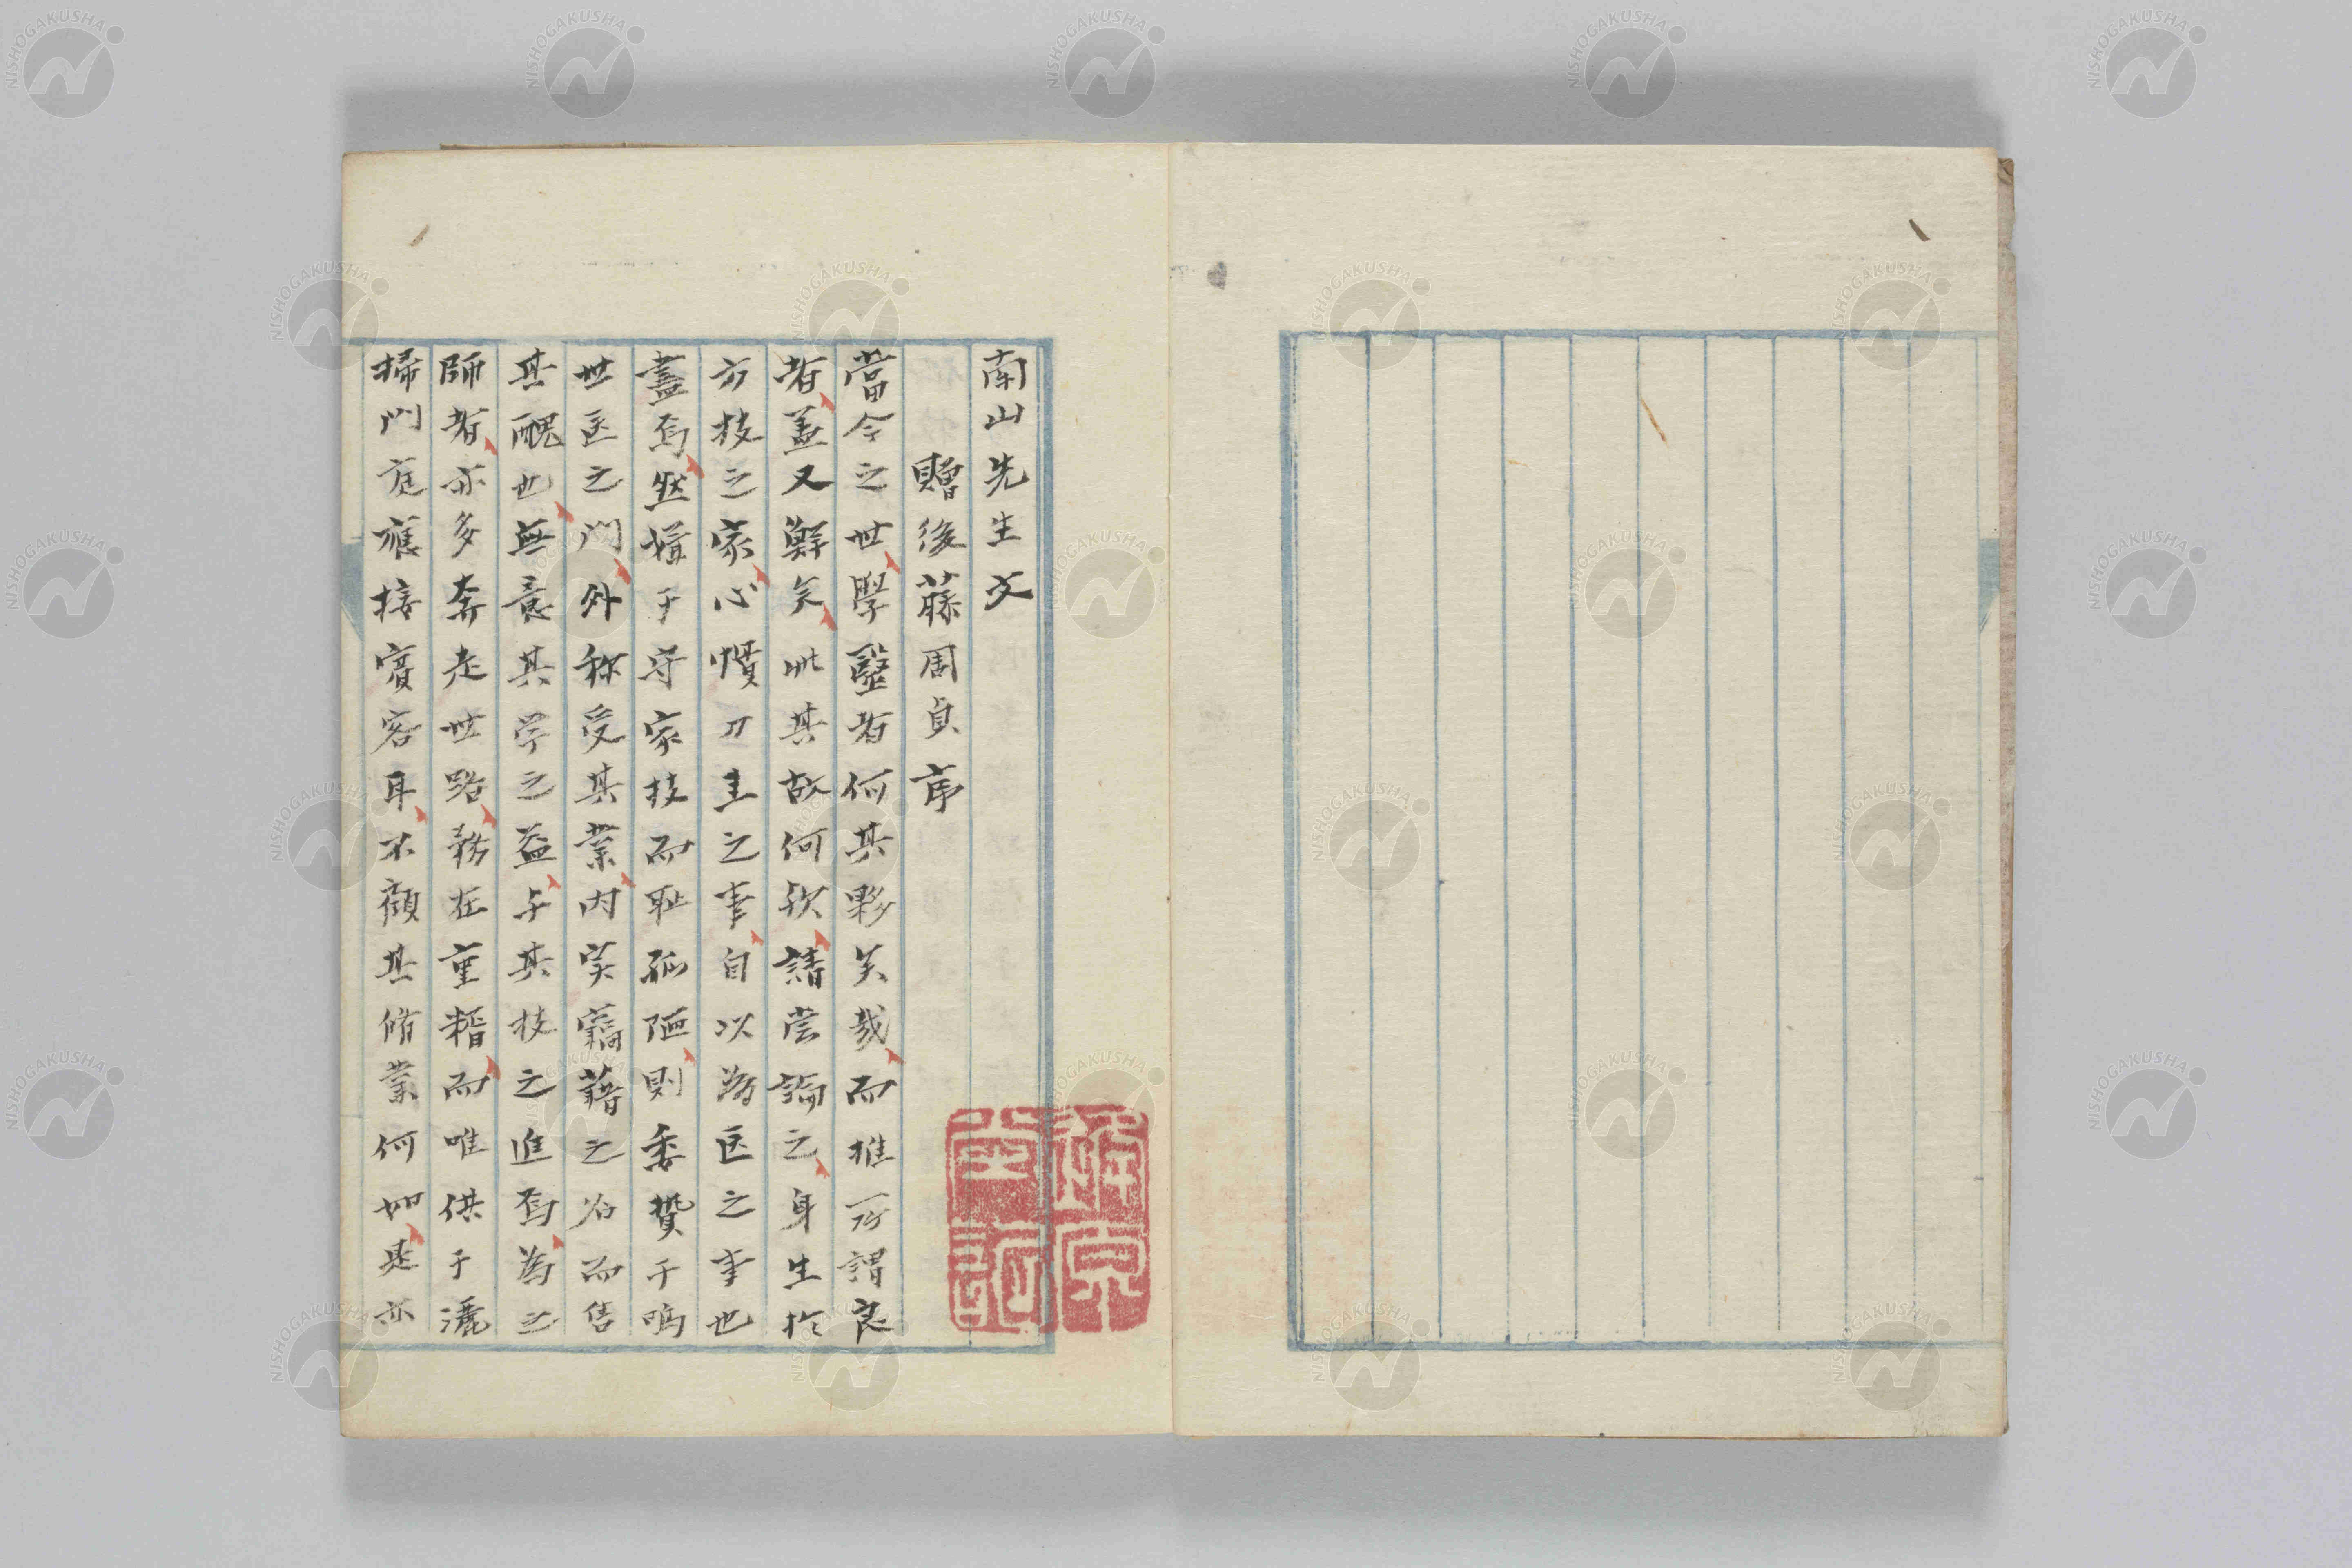 南山先生文
贈後藤周貞序
當今之世學毉者何其夥矣哉而推所謂良
者蓋又鮮矣此其故何欤請嘗論之身生於
方技之家心慣刀圭之事自以為医之事也
盡焉然墯于守家技而耻孤陋則委贄于鳴
世医之門外称受其業内実竊藉之名而售
其醜也無意其学之益与其技之進焉為之
師者亦多奔走世路務在重糈而唯供于灑
掃門庭應接賓客耳不顧其脩業何如是亦
NISHOGAKUSHA